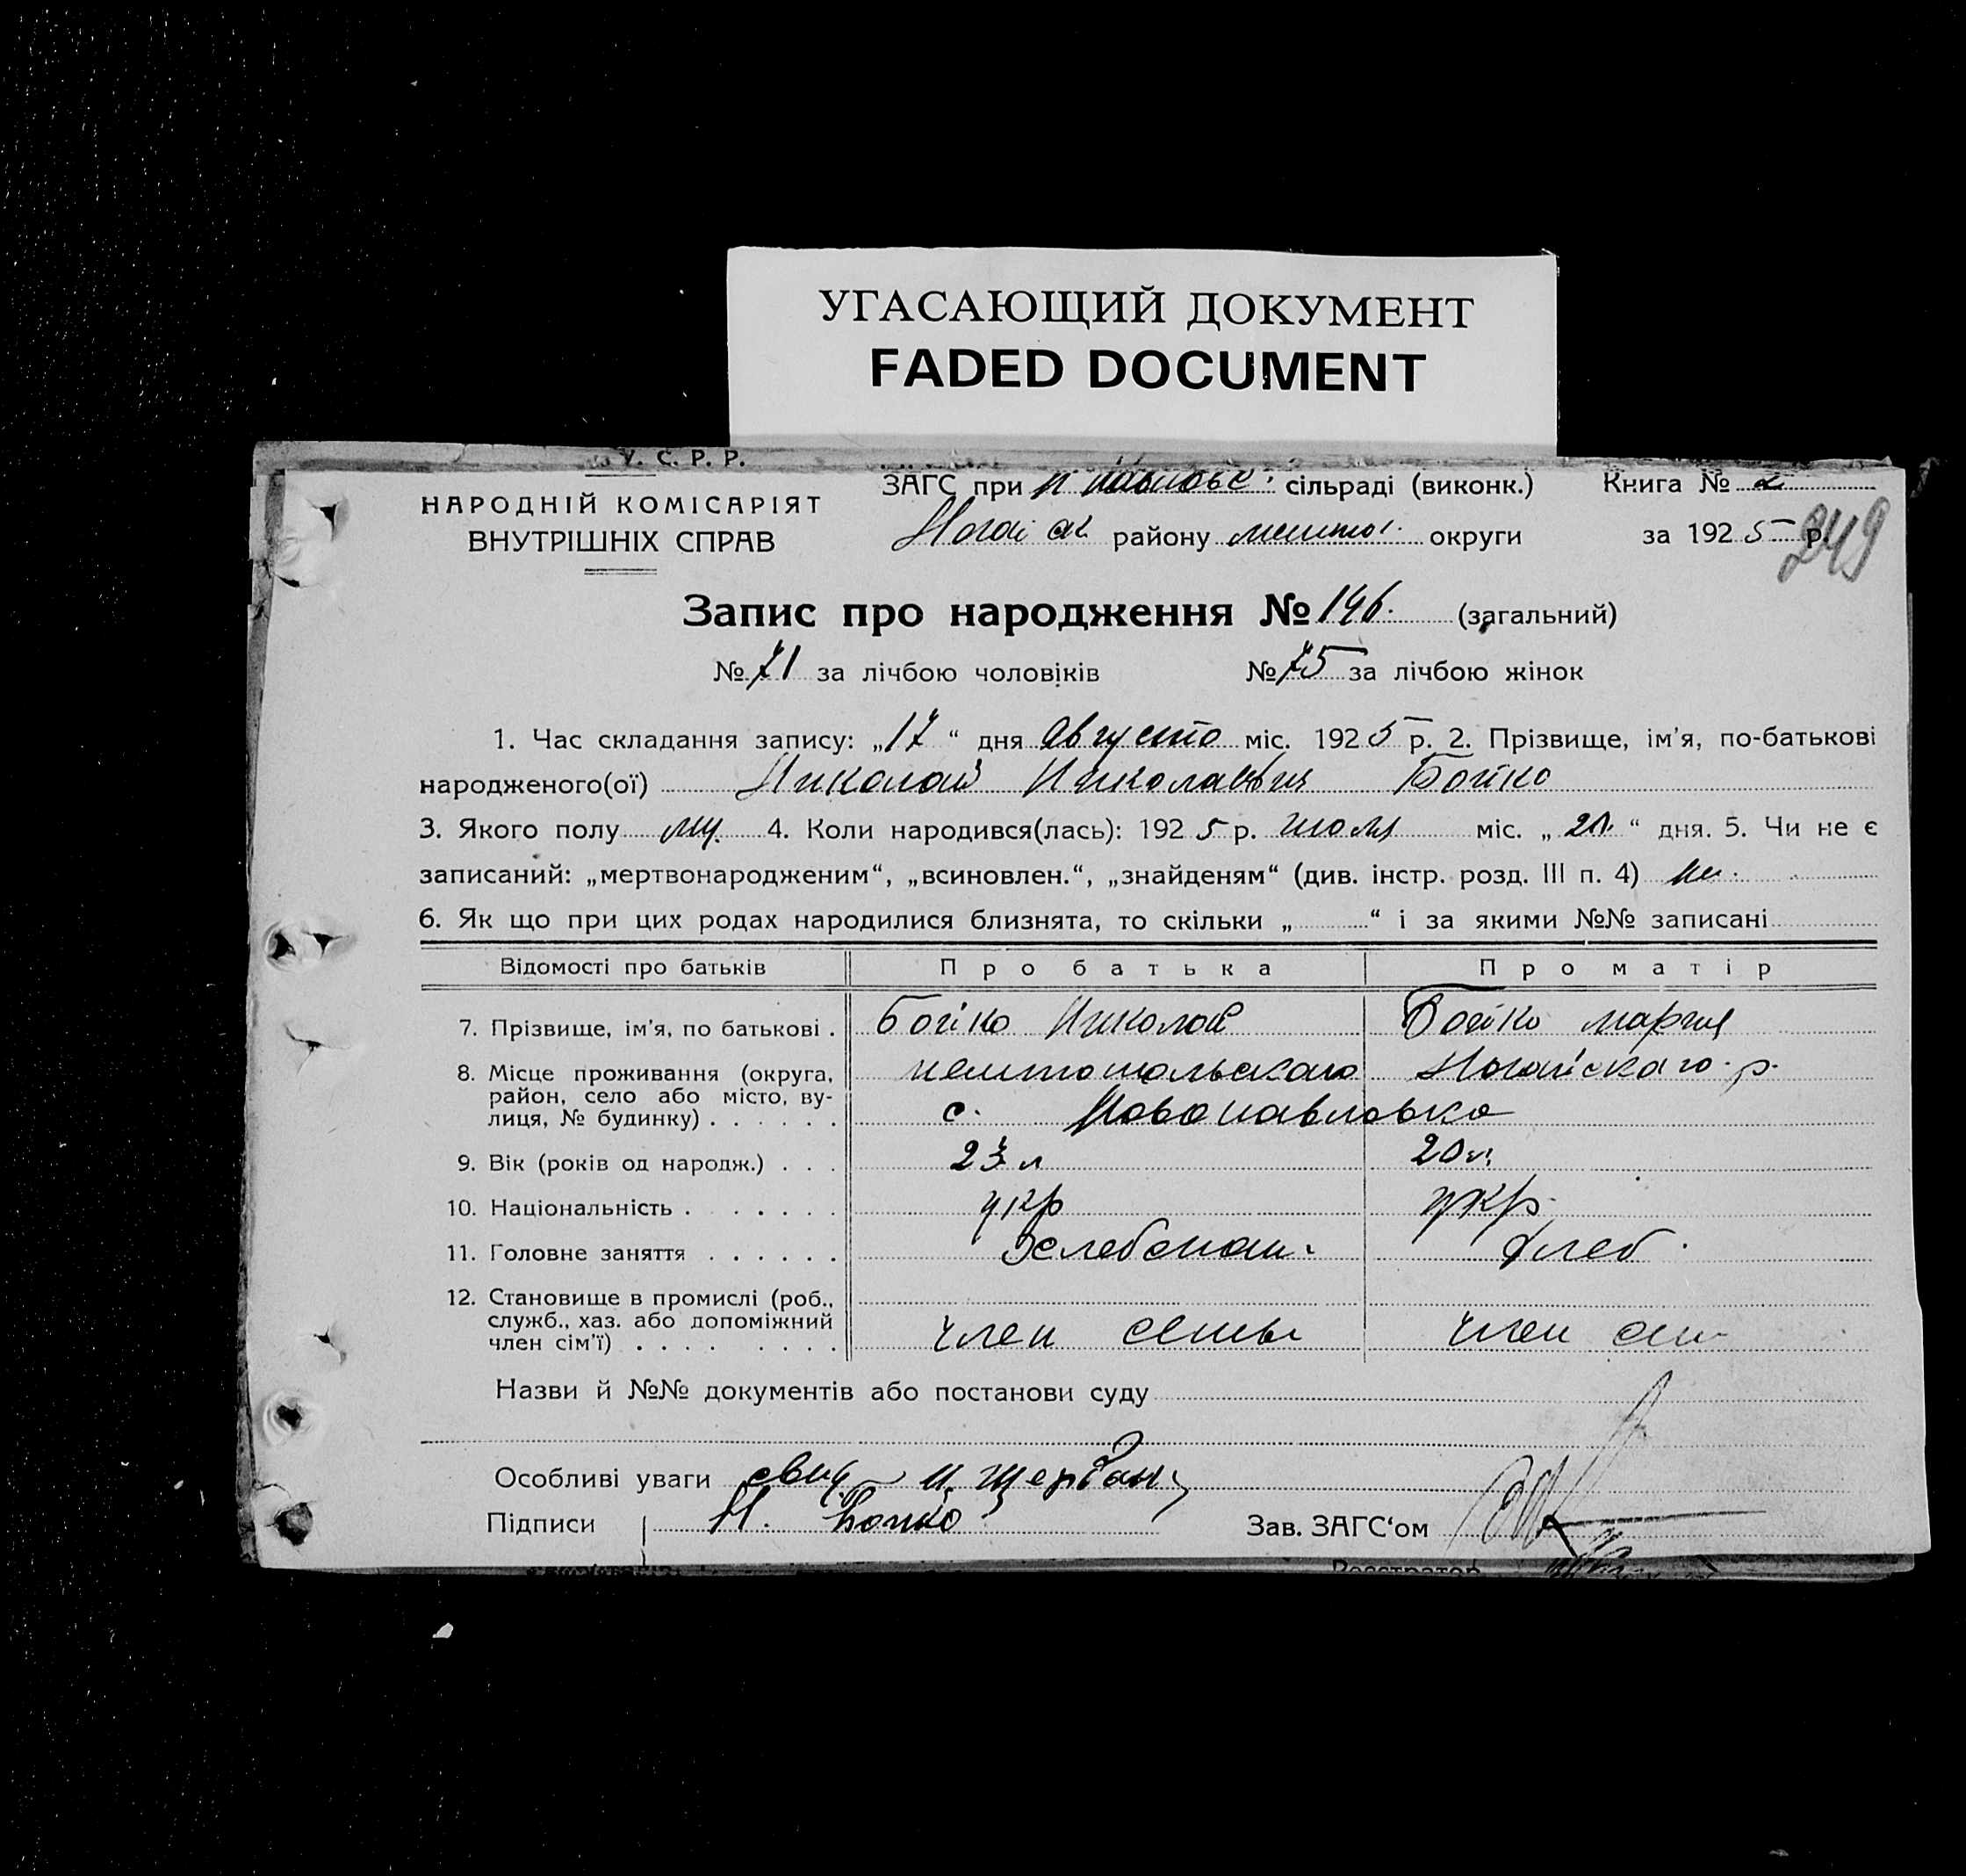 УГАСАЮЩИЙ ДОКУМЕНТ
FADED DOCUMENT
У. С. Р. Р.
НАРОДНІЙ КОМІСАРІЯТ
ВНУТРІШНІХ СПРАВ
ЗАГС при Н павловс. сільраді (виконк.)
Ногайск району мелитоп. округи
Книга № 2
за 1925 р.
249
Запис про народження № 146. (загальний)
№ 71 за лічбою чоловіків № 75 за лічбою жінок
1. Час складання запису: „17“ дня августа міс. 1925 р. 2. Прізвище, ім’я, по-батькові
народженого(ої) Николай Николаевич Бойко
3. Якого полу му. 4. Коли народився(лась): 1925 р. июля міс. „20.“ дня. 5. Чи не є
записаний: „мертвонародженим“, „всиновлен.“, „знайденям“ (див. інстр. розд. III п. 4)
6. Як що при цих родах народилися близнята, то скільки „ “ і за якими №№ записані
Відомості про батьків Про батька Про матір
7. Прізвище, ім’я, по батькові . Бойко Николай Бойко мария
8. Місце проживання (округа, мелитопольскаго Ногайскаго р.
район, село або місто, ву-
лиця, № будинку) . . . . . . с. Новопавловка
9. Вік (років од народж.) . . . 23 л 20 л.
10. Національність . . . . . . . укр укр.
11. Головне заняття . . . . . . хлебопаш. хлеб.
12. Становище в промислі (роб.,
служб., хаз. або допоміжний
член сім’ї) . . . . . . . . член семьи член сем
Назви й №№ документів або постанови суду
Особливі уваги свид. И. Щербань
Підписи Н. Бойко Зав. ЗАГС‘ом
Реєстратор